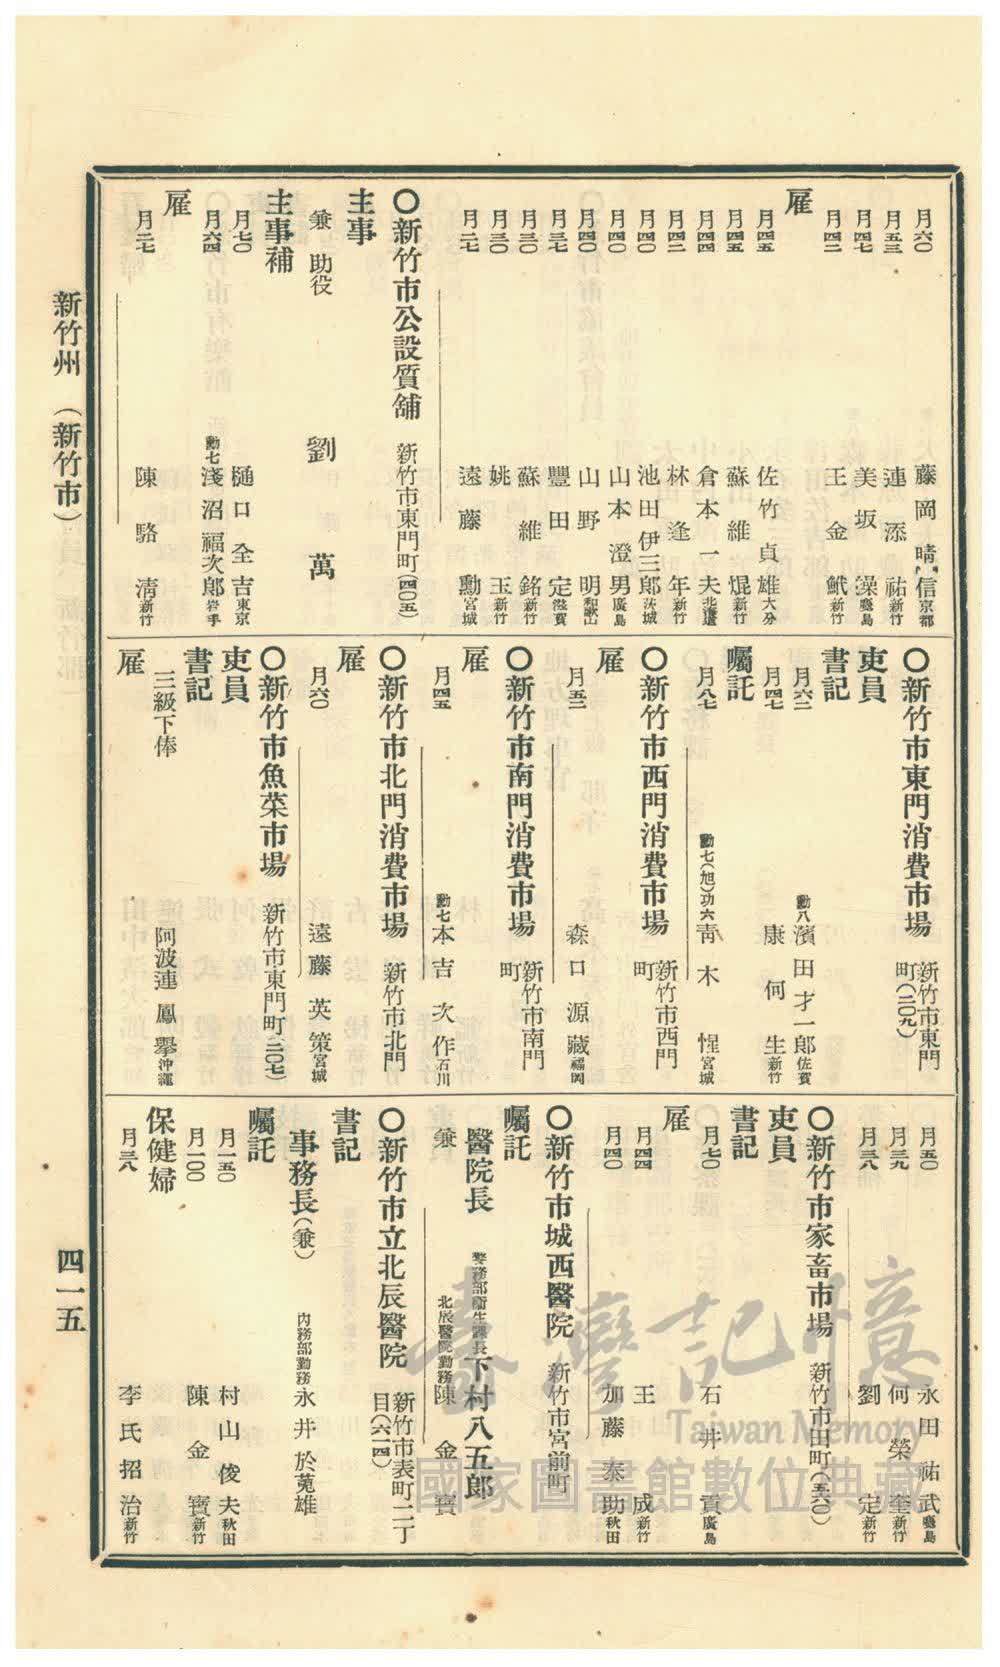 月六〇 藤岡晴信 京都
月五三 連添祐 新竹
月四七 美坂澡 廣島
月四二 王金䱆 新竹
雇
月四五 佐竹貞雄 大分
月四五 蘇維焜 新竹
月四四 倉本一夫 北海道
月四二 林逢年 新竹
月四〇 池田伊三郎 茨城
月四〇 山本澄男 廣島
月四〇 山野明 和歌山
月三七 豐田定 滋賀
月三〇 蘇維銘 新竹
月三〇 姚玉 新竹
月二七 遠藤勳 宮城
〇新竹市公設質舖 新竹市東門町(四〇五)
主事
兼 助役 劉萬
主事補
月七〇 樋口全吉 東京
月六四 勳七 淺沼福次郎 岩手
雇
月二七 陳駱淸 新竹
〇新竹市東門消費市場 新竹市東門
町(二〇九)
吏員
書記
月六二 勳八 濱田才一郎 佐賀
月四七 康何生 新竹
囑託
月八七 勳七(旭)功六 靑木惺 宮城
〇新竹市西門消費市場 新竹市西門
町
雇
月五二 森口源藏 福岡
〇新竹市南門消費市場 新竹市南門
町
雇
月四五 勳七 本吉次作 石川
〇新竹市北門消費市場 新竹市北門
雇
月六〇 遠藤英策 宮城
〇新竹市魚菜市場 新竹市東門町(二〇七)
吏員
書記
三級下俸 阿波連鳳擧 沖繩
雇
月五〇 永田祐武 廣島
月三九 何榮奎 新竹
月三八 劉定 新竹
〇新竹市家畜市場 新竹市田町(五六〇)
吏員
書記
月七〇 石井貢 廣島
雇
月四四 王成 新竹
月四〇 加藤泰助 秋田
〇新竹市城西醫院 新竹市宮前町
囑託
醫院長 警務部衞生課長 下村八五郎
兼 北辰醫院勤務 陳金寶
〇新竹市立北辰醫院 新竹市表町二丁
目(六一四)
書記
事務長(兼) 內務部勤務 永井於莵雄
囑託
月一五〇 村山俊夫 秋田
月一〇〇 陳金寶 新竹
保健婦
月三八 李氏招治 新竹
新竹州 (新竹市)
四一五
臺灣記憶
Taiwan Memory
國家圖書館數位典藏